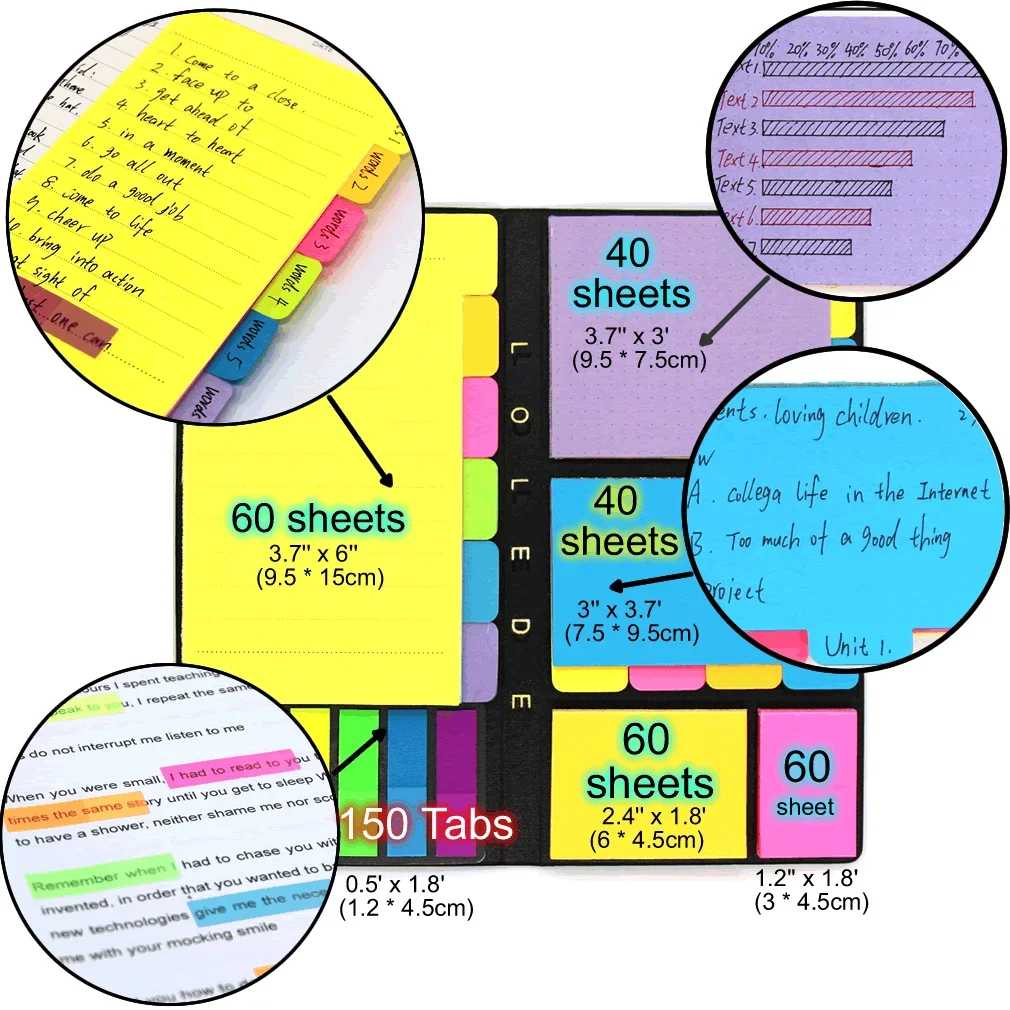 DATE
1. Come to a close.
2. face up to
3. get ahead of
4. heart to heart
5. in a moment
6. go all out
7. do a good job
8. come to life
9. cheer up
10. bring into action
sight of
one can
words 2
words 3
words 4
words 5
words
10% 20% 30% 40% 50% 60% 70%
Text 2
Text 3.
Text 4.
Text 5.
Text 6.
40
sheets
3.7" x 3'
(9.5 * 7.5cm)
LOLEDE
60 sheets
3.7" x 6"
(9.5 * 15cm)
40
sheets
3" x 3.7'
(7.5 * 9.5cm)
ents. loving children. 2,
w
A. collega life in the Internet
B. Too much of a good thing
project
Unit 1.
ours I spent teaching
eak to you, I repeat the same
do not interrupt me listen to me
When you were small, I had to read to you
times the same story until you get to sleep
to have a shower, neither shame me nor sco
Remember when I had to chase you wit
invented, in order that you wanted to b
new technologies give me the nece
me with your mocking smile
you how to d
150 Tabs
0.5' x 1.8'
(1.2 * 4.5cm)
60
sheets
2.4" x 1.8'
(6 * 4.5cm)
60
sheet
1.2" x 1.8'
(3 * 4.5cm)